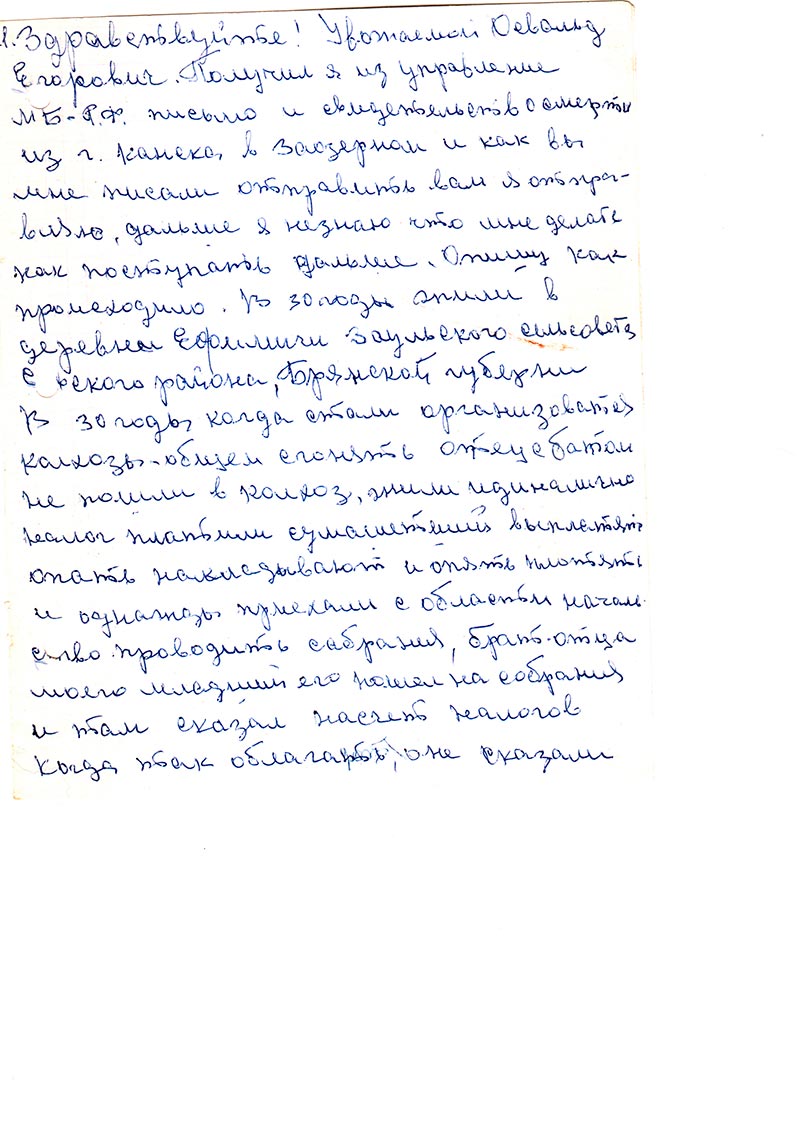 1. Здравствуйте! Уважаемой Освальд
Егорович. Получил я из управление
МБ-Р.Ф. письмо и свидетельство о смерти
из г. Канска, в Заозерном и как вы
мне писали отправить вам я отпра-
вляю, дальше я незнаю что мне делать
как поступать дальше. Опишу как
происходило. В 30 годы жили в
деревни Ефимичи Заульского сельсовета
С вского района, Брянской губерни
В 30 годы, когда стали организоватся
колхозы-общем сгонять отец с батом
не пошли в колхоз, жили идинолично
налог платили сумашетший выплатять
опать накладывают и опять плотять
и однажды приехали с области началь
ство проводить собрания, брат-отца
моего младший его пошел на собрания
и там сказал насчет налогов
Когда так облагать, оне сказали